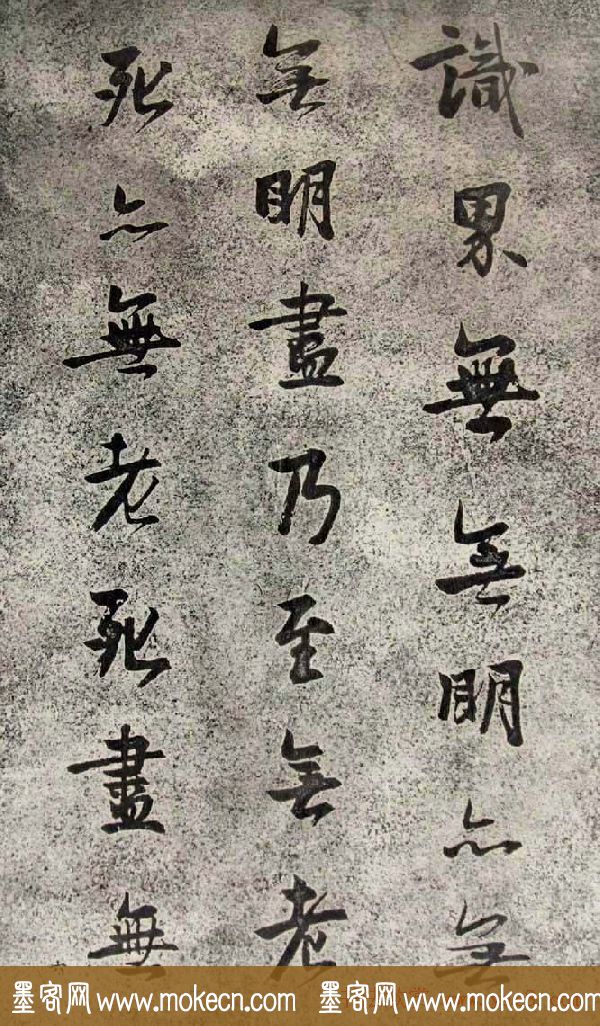 識界無無明亦無
無明盡乃至無老
死亦無老死盡無
墨客网 www.mokecn.com 墨客网 www.mokecn.com